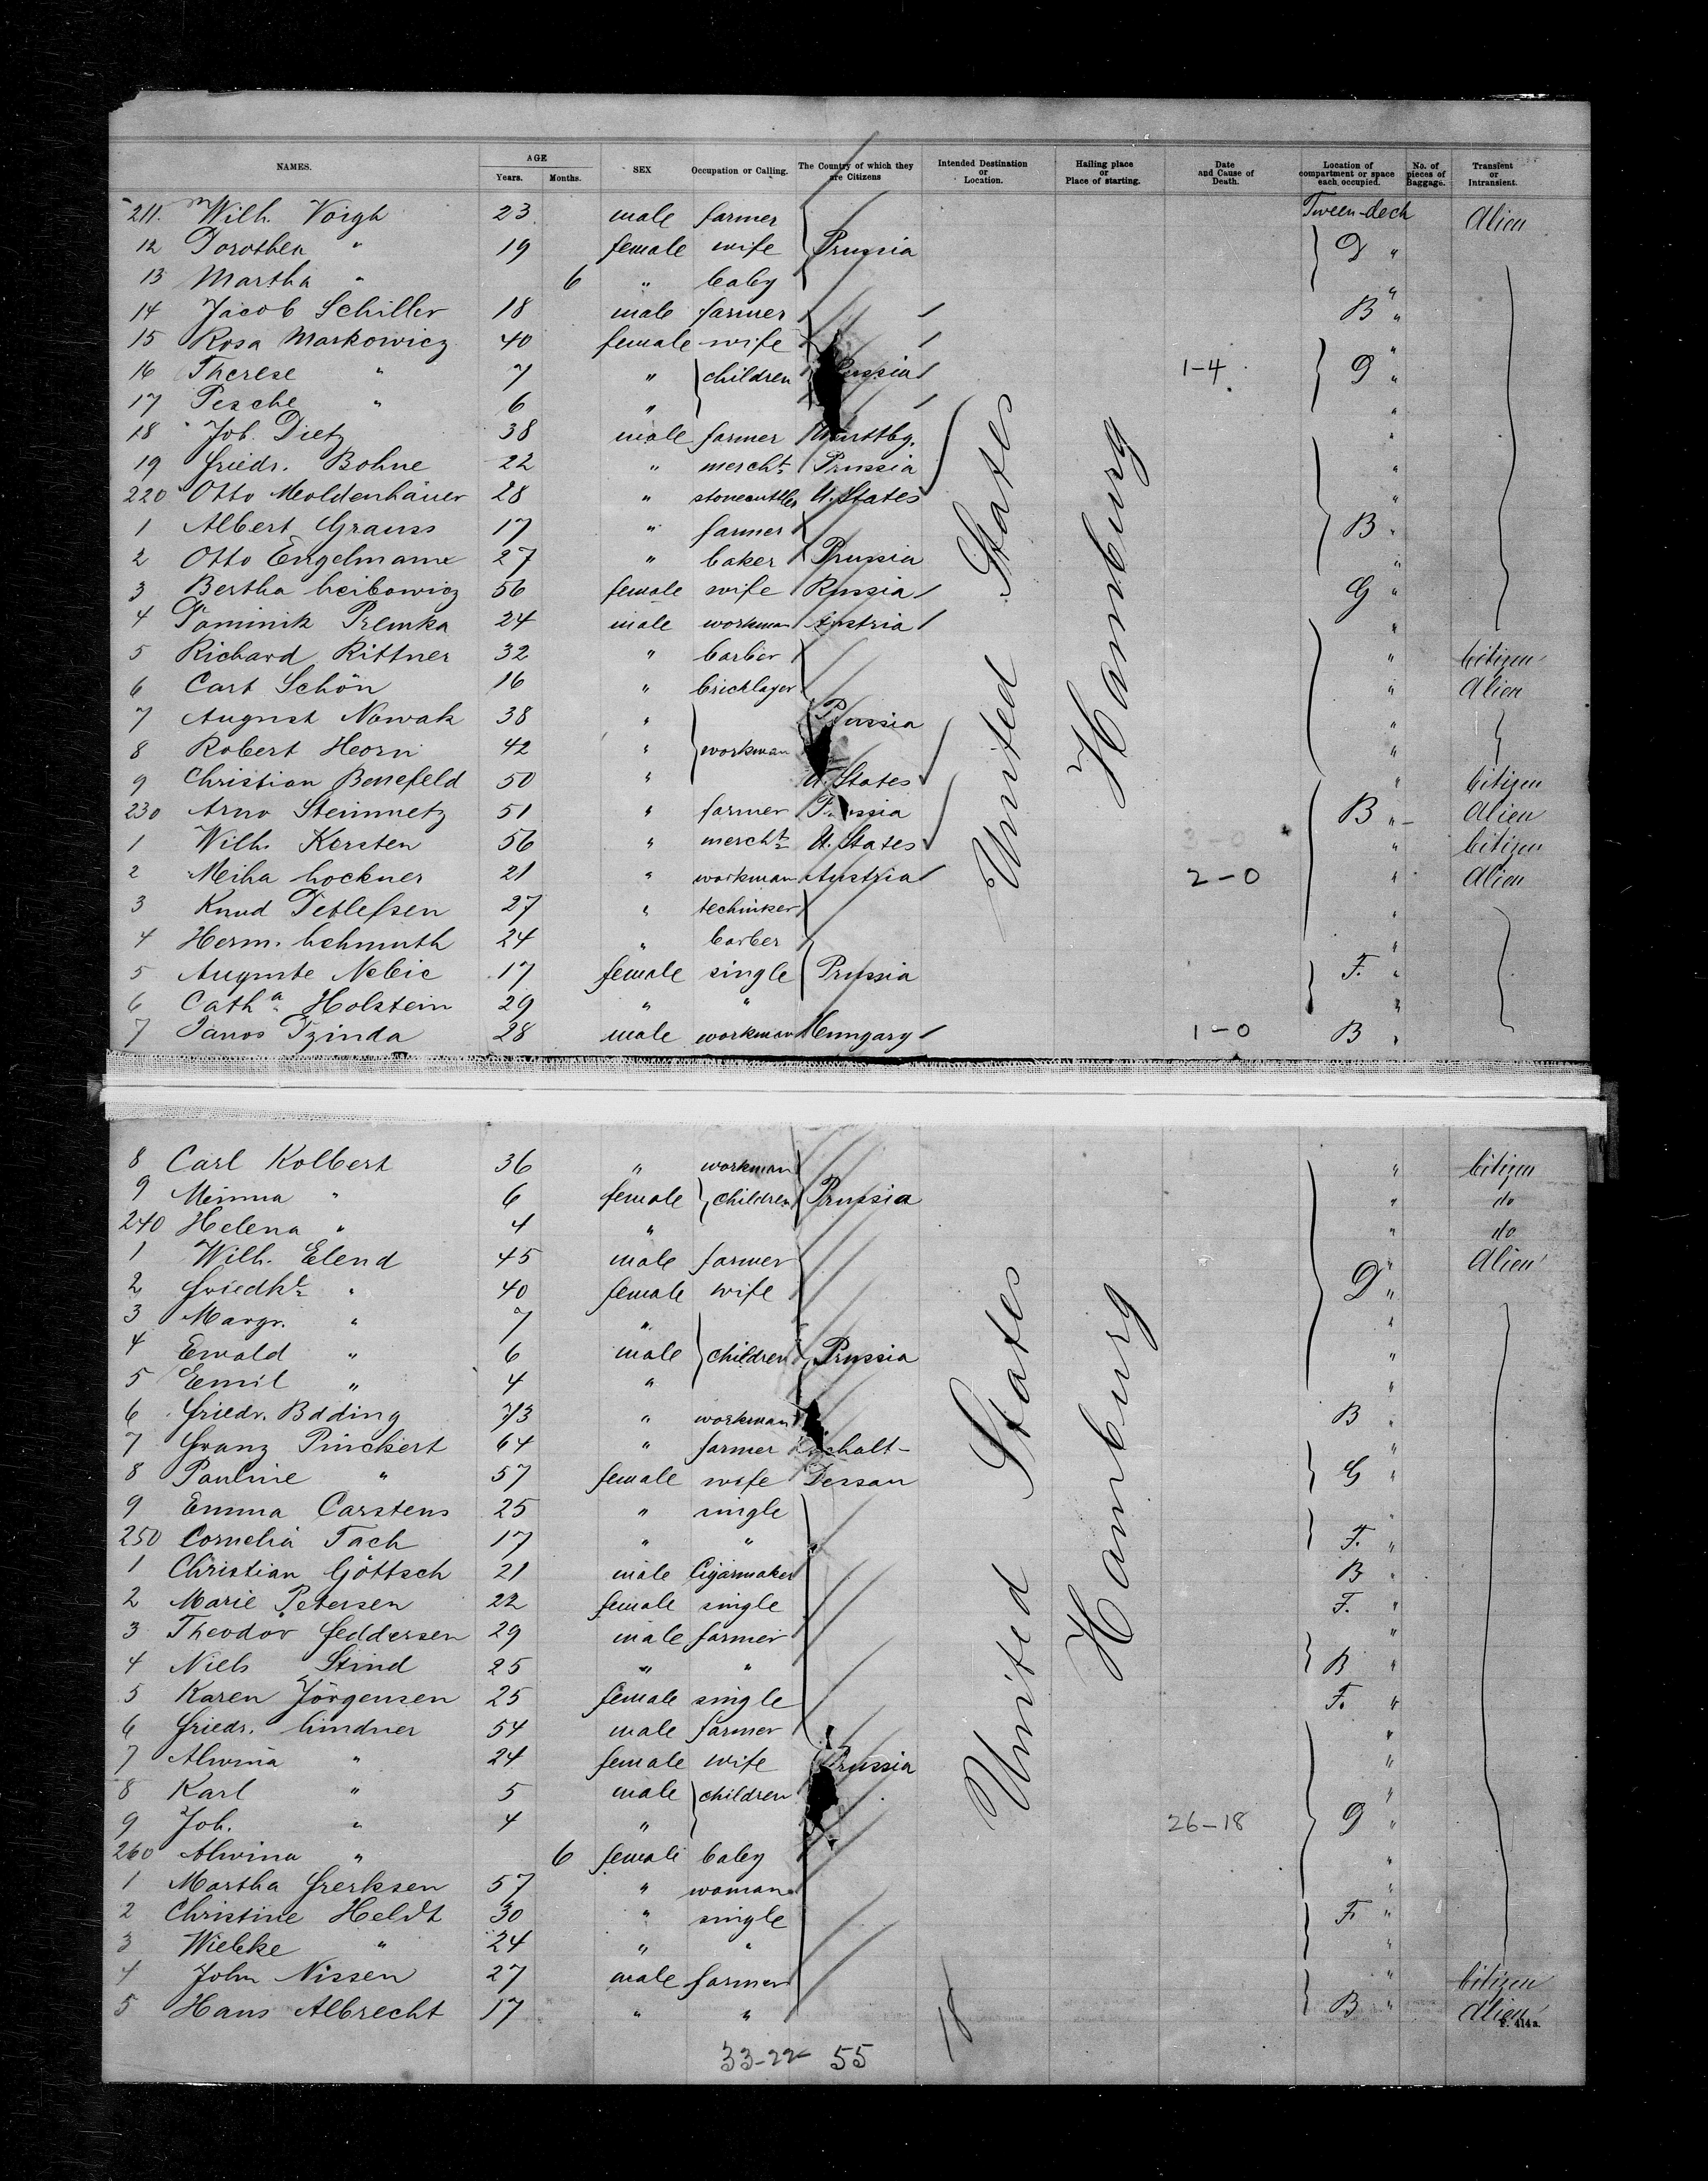 NAMES. AGE Years. Months. SEX Occupation or Calling. The Country of which they are Citizens Intended Destination or Location. Hailing place or Place of starting. Date and Cause of Death. Location of compartment or space each occupied. No. of pieces of Baggage. Transient or Intransient.
211. Wilh. Voigh 23 male farmer Tween-deck Alien
12 Dorothea " 19 female wife Prussia D "
13 Martha " 6 " baby "
14 Jacob Schiller 18 male farmer B "
15 Rosa Markowicz 40 female wife "
16 Therese " 7 " children Russia 1-4 D "
17 Pesche " 6 " "
18 Joh. Dietz 38 male farmer Württbg. "
19 Friedr. Bohne 22 " mercht Prussia "
220 Otto Moldenhauer 28 " stonecuttler U. States "
1 Albert Grauss 17 " farmer B "
2 Otto Engelmann 27 " baker Prussia "
3 Bertha Leibowicz 56 female wife Russia G "
4 Dominik Premka 24 male workman Austria "
5 Richard Rittner 32 " barber " Citizen
6 Carl Schön 16 " bricklayer " Alien
7 August Nowak 38 " Prussia "
8 Robert Horn 42 " workman "
9 Christian Benefeld 50 " U. States " Citizen
230 Arno Steinmetz 51 " farmer Prussia B " Alien
1 Wilh. Kersten 56 " mercht U. States 3-0 " Citizen
2 Meiha Lockner 21 " workman Austria 2-0 " Alien
3 Knud Detlefsen 27 " techniker "
4 Herm. Lehmuth 24 " barber "
5 Auguste Nebie 17 female single Prussia F. "
6 Catha Holstein 29 " " "
7 Janos Tzinda 28 male workman Hungary 1-0 B "
United States
Hamburg
8 Carl Kolbert 36 " workman " Citizen
9 Minna " 6 female children Prussia " do
240 Helena " 4 " " do
1 Wilh. Elend 45 male farmer " Alien
2 Friedke " 40 female wife D "
3 Margr. " 7 " "
4 Ewald " 6 male children Prussia "
5 Emil " 4 " "
6 Friedr. Bdding 73 " workman B "
7 Franz Pinckert 64 " farmer Anhalt- "
8 Pauline " 57 female wife Dessau G "
9 Emma Carstens 25 " single "
250 Cornelia Tach 17 " " F. "
1 Christian Göttsch 21 male Cigarmaker B "
2 Marie Petersen 22 female single F. "
3 Theodor Feddersen 29 male farmer "
4 Niels Stind 25 " " B "
5 Karen Jörgensen 25 female single F. "
6 Friedr. Lindner 54 male farmer "
7 Alwina " 24 female wife Prussia "
8 Karl " 5 male children "
9 Joh. " 4 " 26-18 D "
260 Alwina " 6 female baby "
1 Martha Frerksen 57 " woman "
2 Christine Heldt 30 " single F. "
3 Wiebke " 24 " " "
4 John Nissen 27 male farmer " Citizen
5 Hans Albrecht 17 " " B " Alien
United States
Hamburg
F. 414a.
33-22 55
18